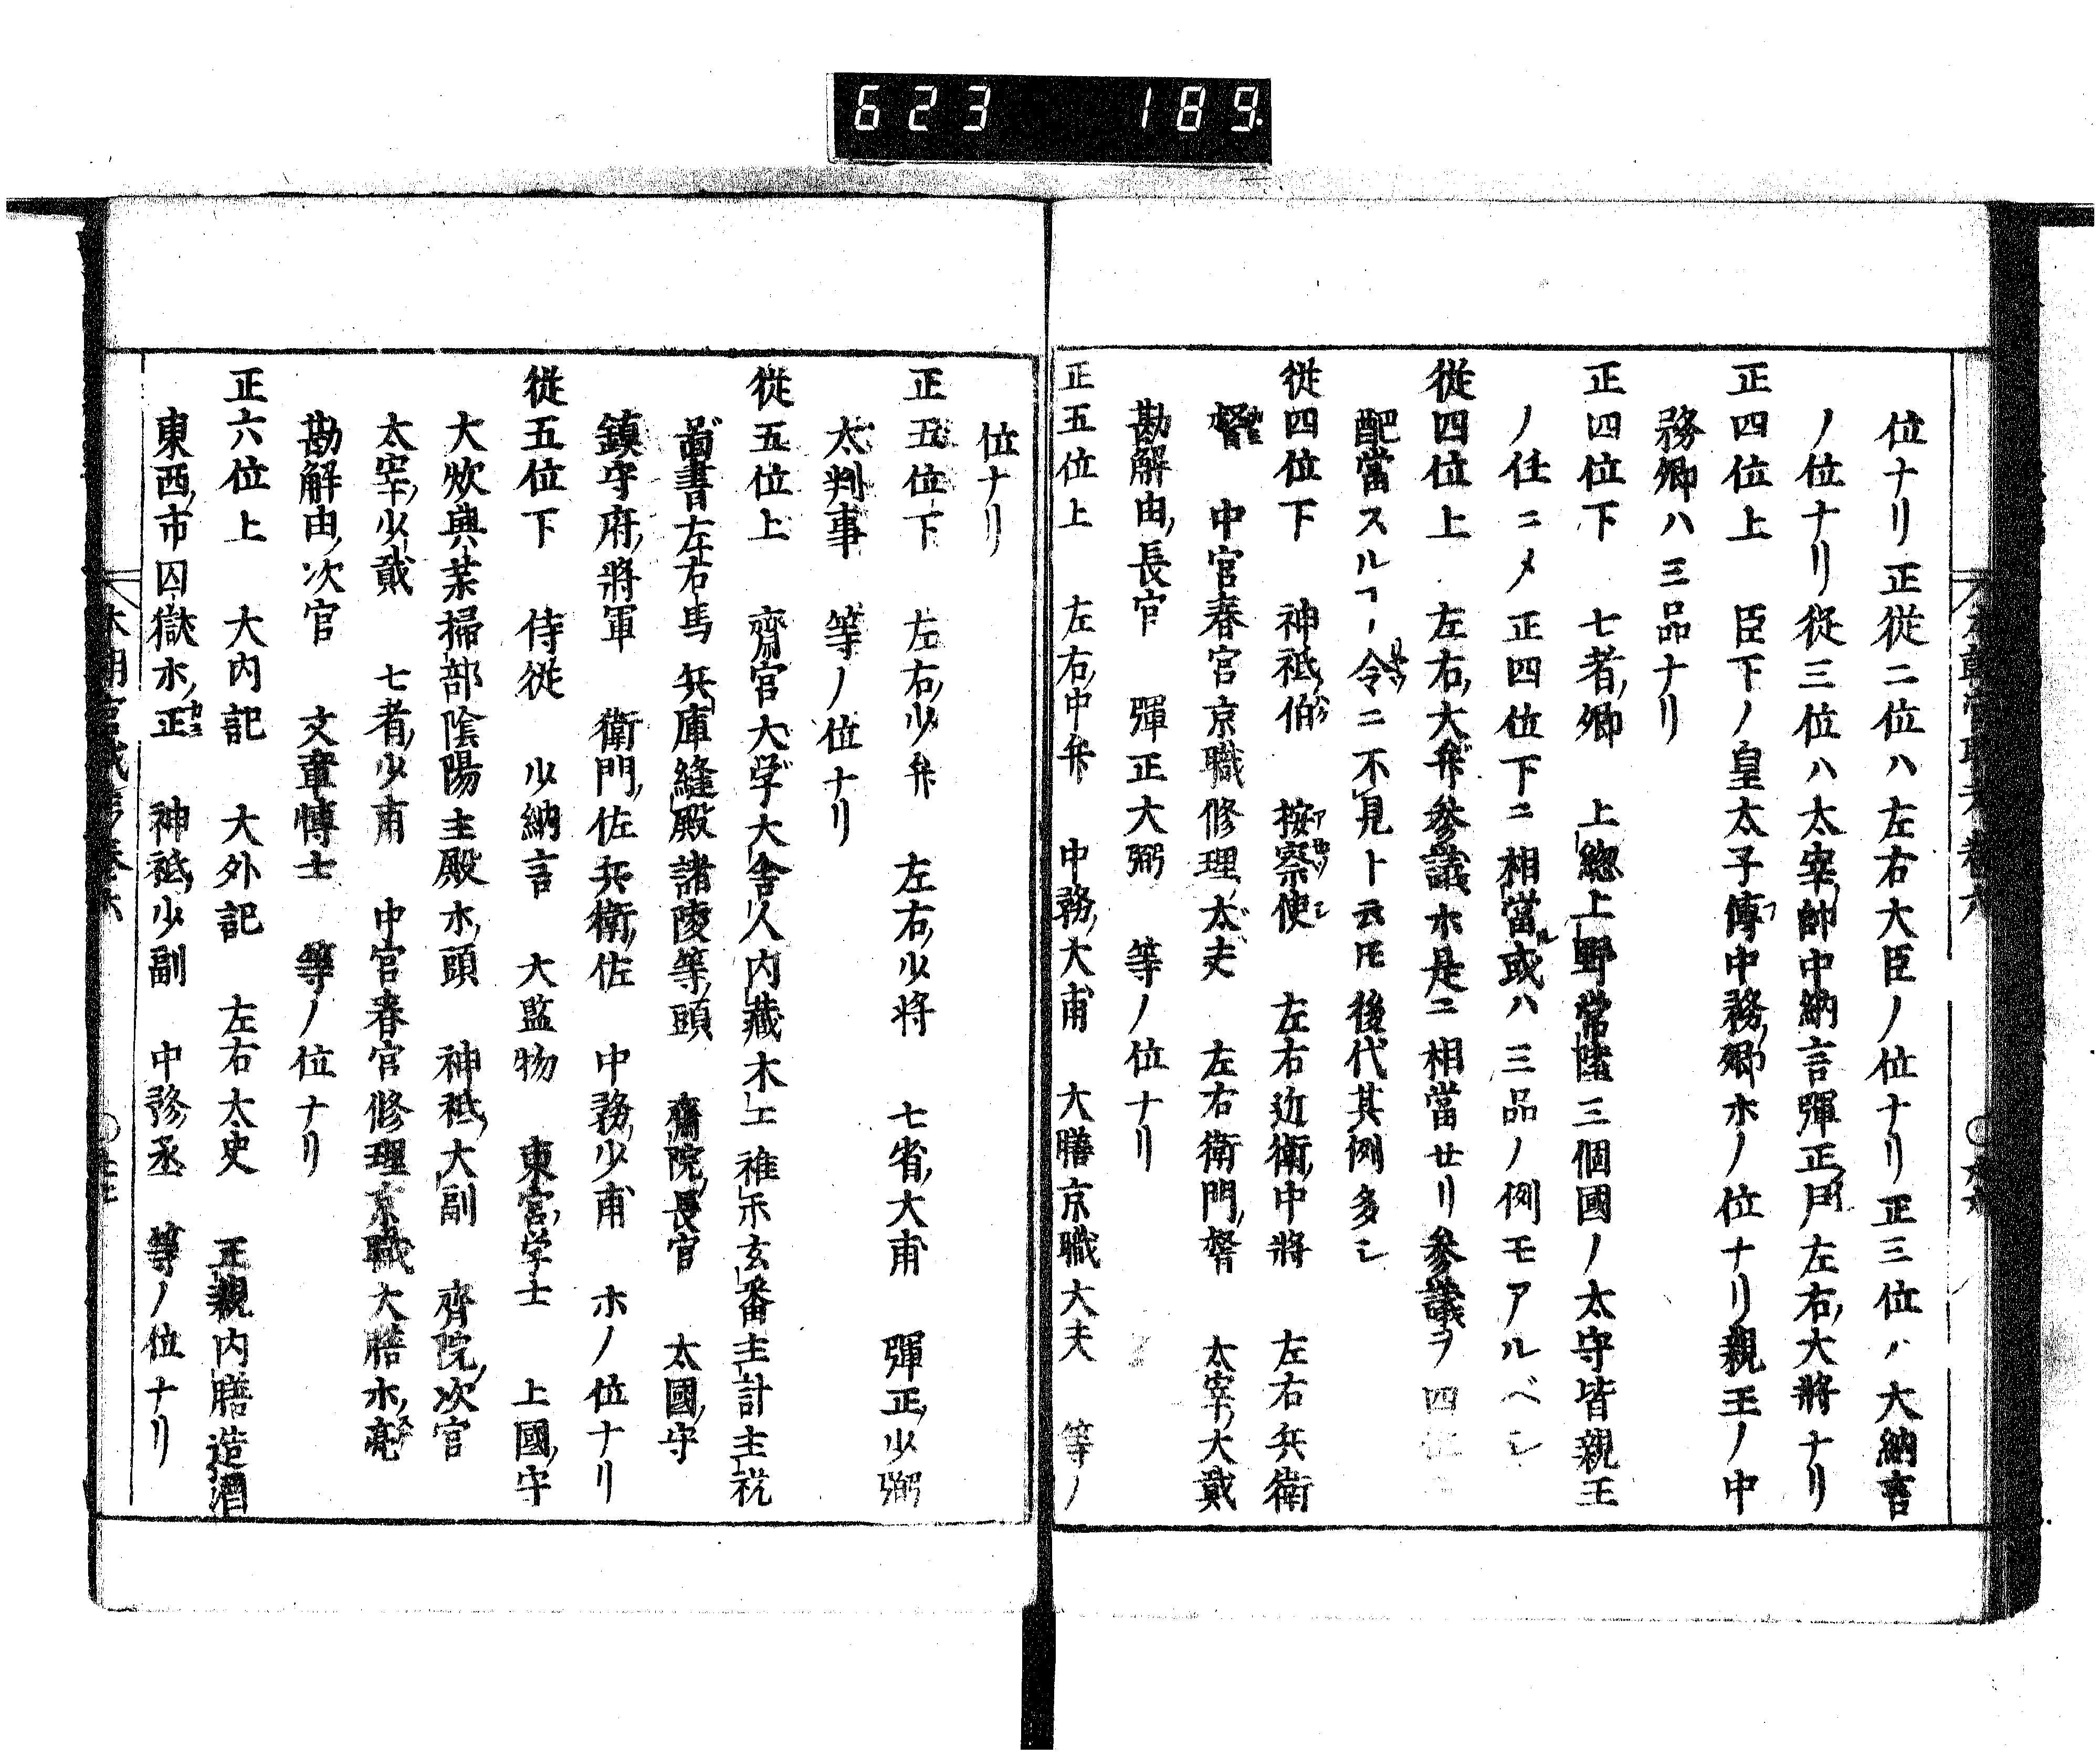 623 189.
位ナリ正従二位ハ左右大臣ノ位ナリ正三位ハ大納言
ノ位ナリ従三位ハ太宰帥中納言彈正尹左右大將ナリ
正四位上 臣下ノ皇太子傅中務卿ホノ位ナリ親王ノ中
務卿ハ三品ナリ
正四位下 七省卿 上総上野常陸三個國ノ太守皆親王
ノ任ニメ正四位下ニ相當或ハ三品ノ例モアルベシ
従四位上 左右大弁参議ホ是ニ相當せリ参議ヲ四位
配當スルヿ令ニ不見ト云𪜈後代其例多シ
従四位下 神祇伯 按察使 左右近衛中將 左右兵衛
督 中宮春宮京職修理太夫 左右衛門督 太宰大貳
勘解由長官 彈正大弼 等ノ位ナリ
正五位上 左右中弁 中務大甫 大膳京職大夫 等ノ
位ナリ
正五位下 左右少弁 左右少将 七省大甫 彈正少弼
太判事 等ノ位ナリ
従五位上 齋宮大学大舎人内藏木工雅乐玄番主計主税
啚書左右馬兵庫縫殿諸陵等頭 齋院長官 太國守
鎮守府將軍 衛門佐兵衛佐 中務少甫 ホノ位ナリ
従五位下 侍従 少納言 大監物 東宮学士 上國守
大炊典薬掃部陰陽主殿ホ頭 神祇大副 齊院次官
太宰少貳 七省少甫 中宮春宮修理京職大膳ホ亮
勘解由次官 文章博士 等ノ位ナリ
正六位上 大内記 大外記 左右太史 正親内膳造酒
東西市囚獄ホ正 神祇少副 中務丞 等ノ位ナリ